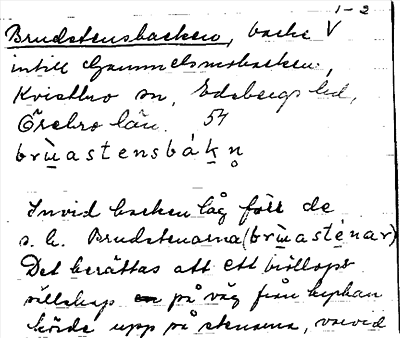 1-2
Brudstensbacken, backe V
intill Gammelsmobacken,
Kvistbro sn, Edsbergs hd,
Örebro län. 54
brùastensbákn̥
Invid backen låg förr de
s. k. Brudstenarna (brùasténar)
Det berättas att ett bröllops-
sällskap på väg från kyrkan
körde upp på stenarna, varvid